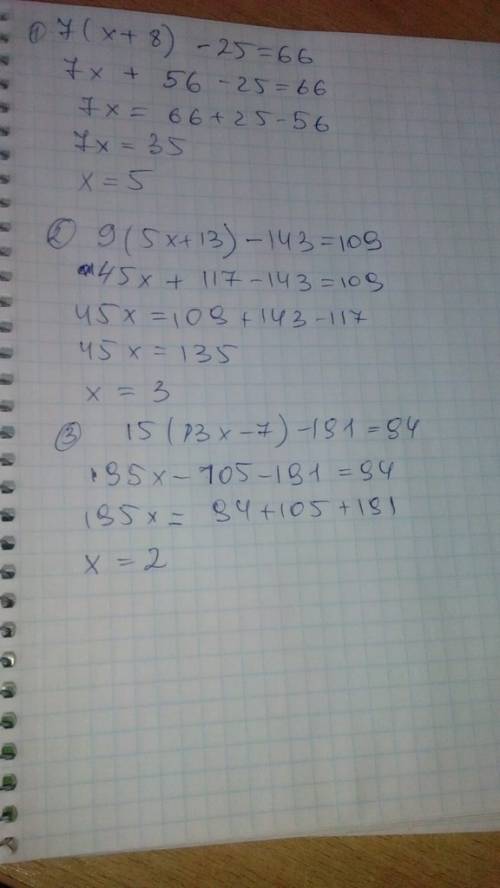 ① 7(x+8) -25=66
7x + 56 -25=66
7x = 66+25-56
7x = 35
x = 5
② 9(5x+13)-143=109
45x + 117-143=109
45x = 109+143-117
45x = 135
x = 3
③ 15(13x-7)-191=94
195x-105-191=94
195x = 94+105+191
x = 2